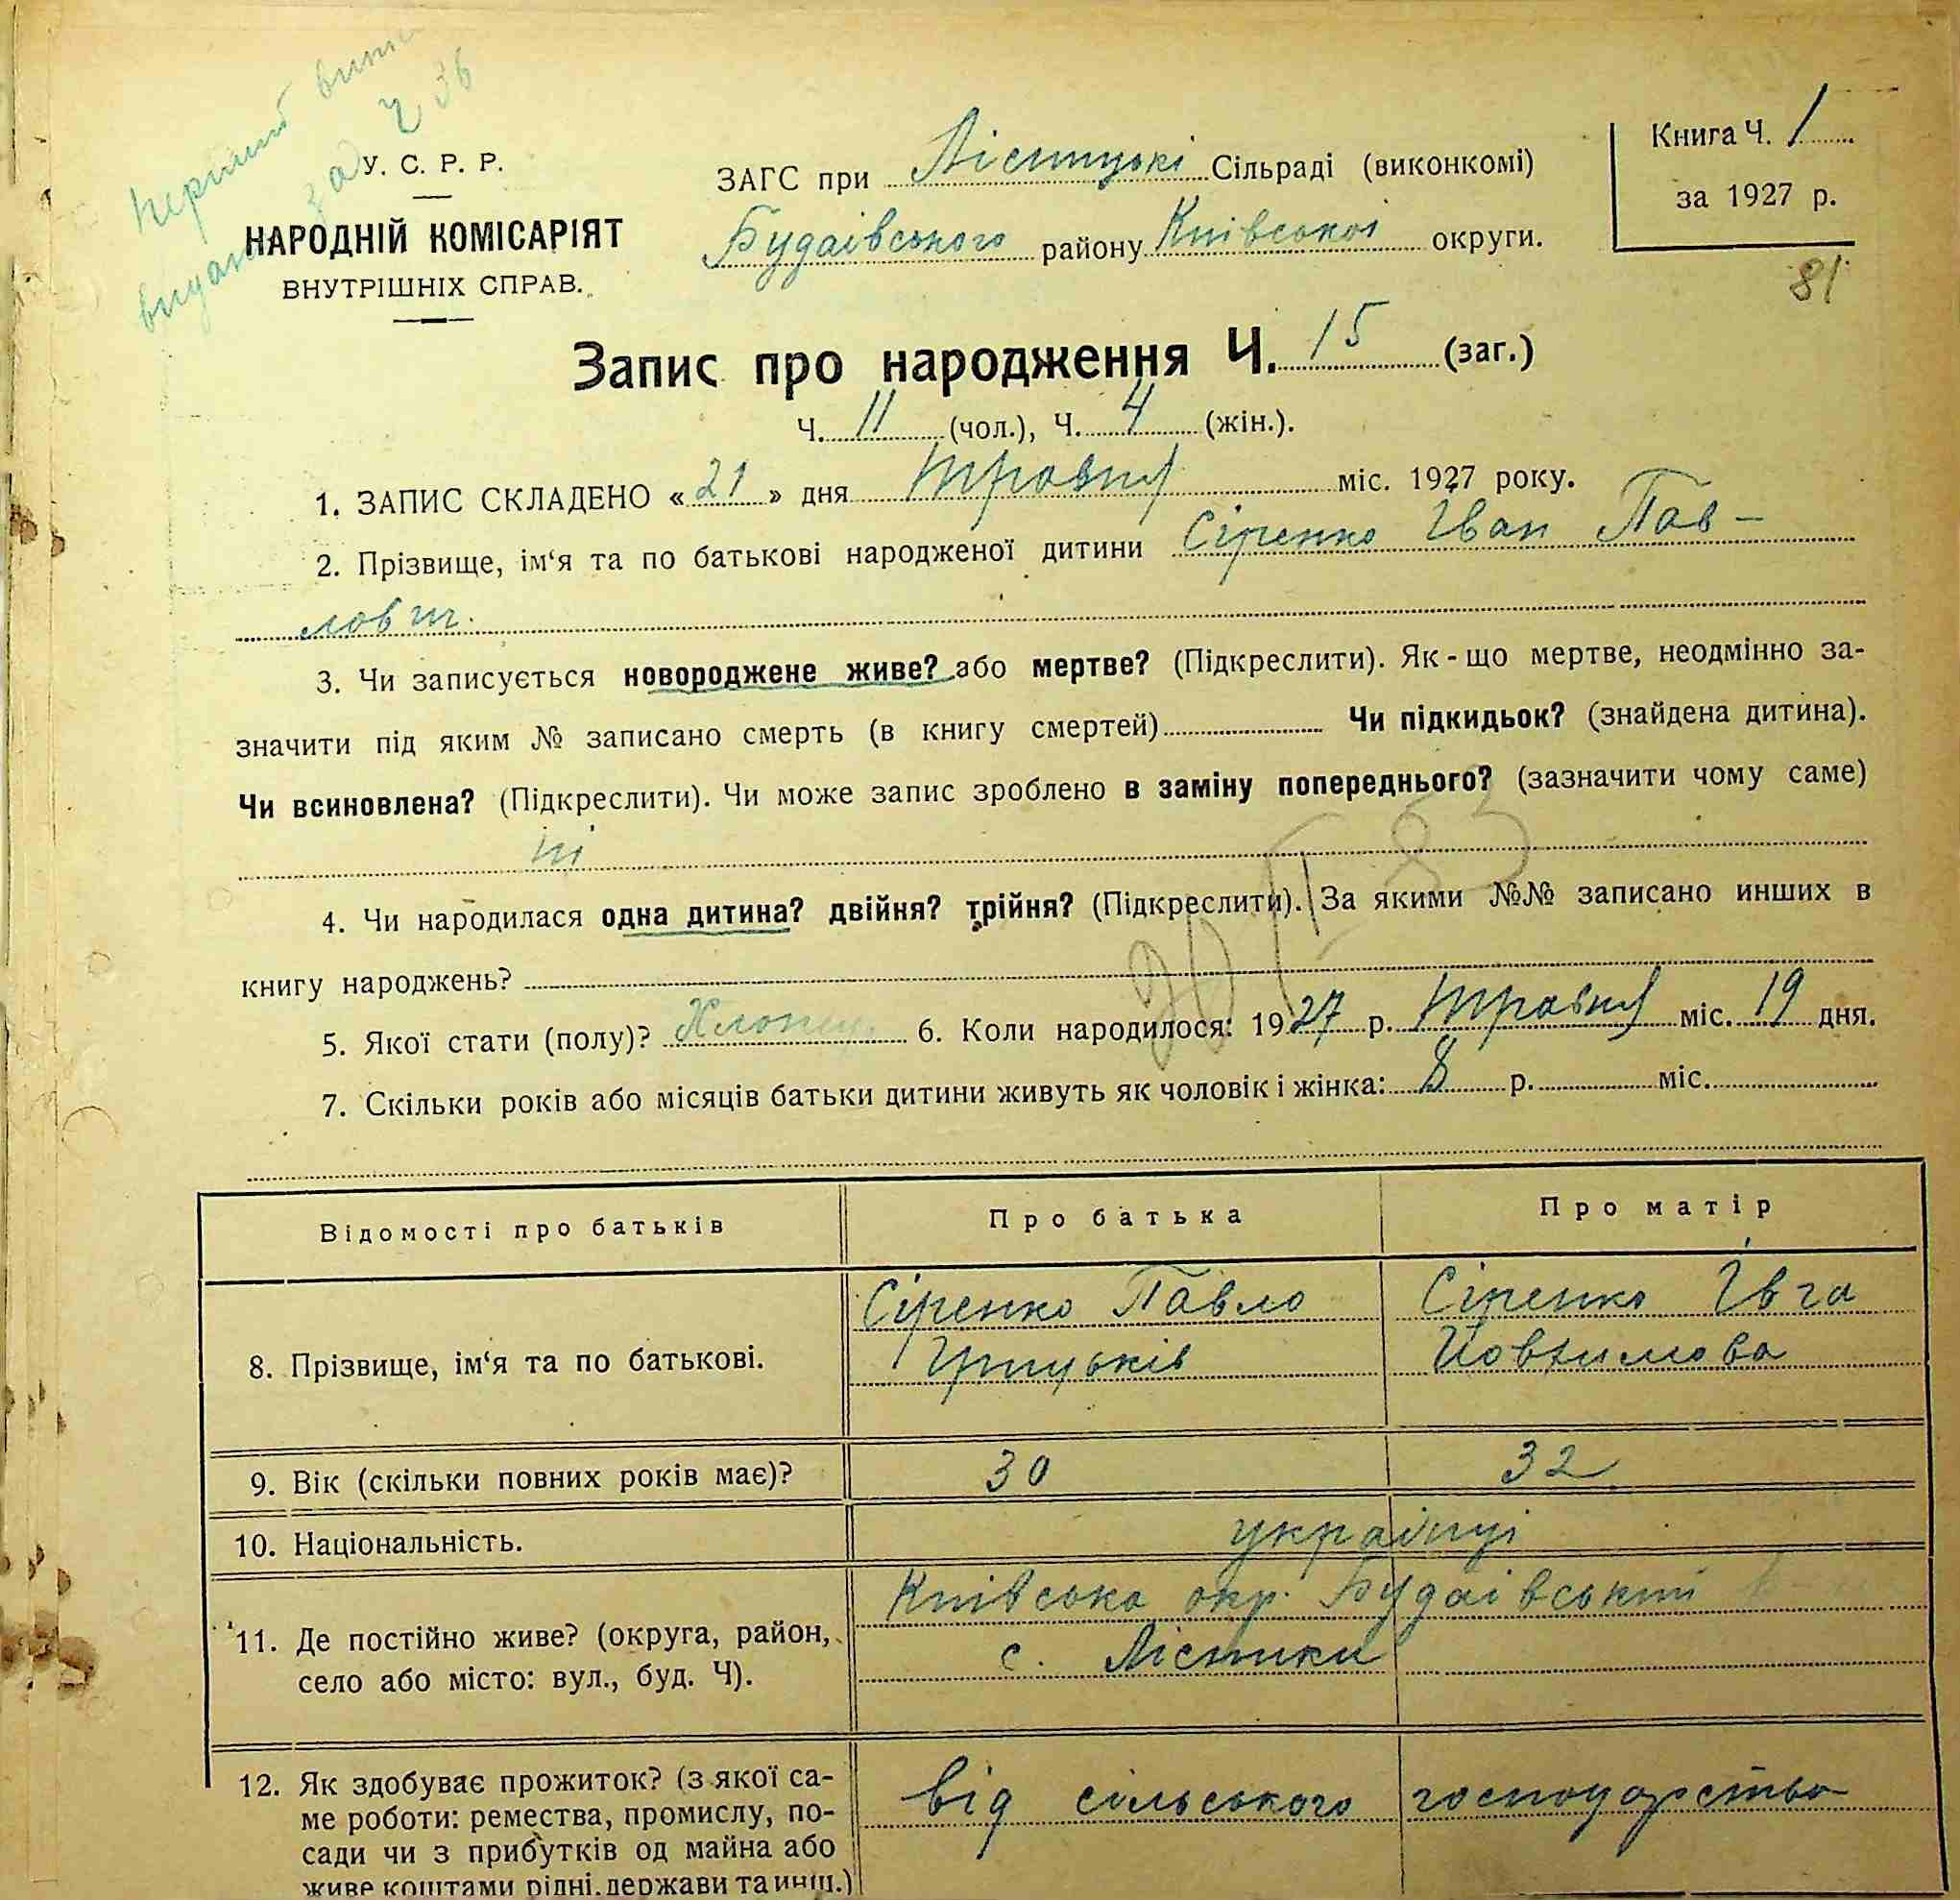 перший випис
видано за Ч 36
У. С. Р. Р.
НАРОДНІЙ КОМІСАРІЯТ
ВНУТРІШНІХ СПРАВ.
ЗАГС при Лістицькі Сільраді (виконкомі)
Будаівського району Київськоі округи.
Книга Ч. 1
за 1927 р.
81
Запис про народження Ч. 15 (заг.)
Ч. 11 (чол.), Ч. 4 (жін.).
1. ЗАПИС СКЛАДЕНО «21» дня травня міс. 1927 року.
2. Прізвище, ім‘я та по батькові народженої дитини Сіренко Іван Пав-
лович.
3. Чи записується новороджене живе? або мертве? (Підкреслити). Як-що мертве, неодмінно за-
значити під яким № записано смерть (в книгу смертей) Чи підкидьок? (знайдена дитина).
Чи всиновлена? (Підкреслити). Чи може запис зроблено в заміну попереднього? (зазначити чому саме)
ні
4. Чи народилася одна дитина? двійня? трійня? (Підкреслити). За якими №№ записано инших в
книгу народжень?
5. Якої стати (полу)? Хлопец. 6. Коли народилося: 1927 р. травня міс. 19 дня.
7. Скільки років або місяців батьки дитини живуть як чоловік і жінка: 8 р. міс.
Відомості про батьків Про батька Про матір
8. Прізвище, ім‘я та по батькові. Сіренко Павло Сіренко Івга
Грицьків Йовхимова
9. Вік (скільки повних років має)? 30 32
10. Національність. украінці
Київська окр. Будаівський
11. Де постійно живе? (округа, район,
с. Лістики
село або місто: вул., буд. Ч).
12. Як здобуває прожиток? (з якої са-
від сільського господарства
ме роботи: ремества, промислу, по-
сади чи з прибутків од майна або
живе коштами рідні, держави та инш.)